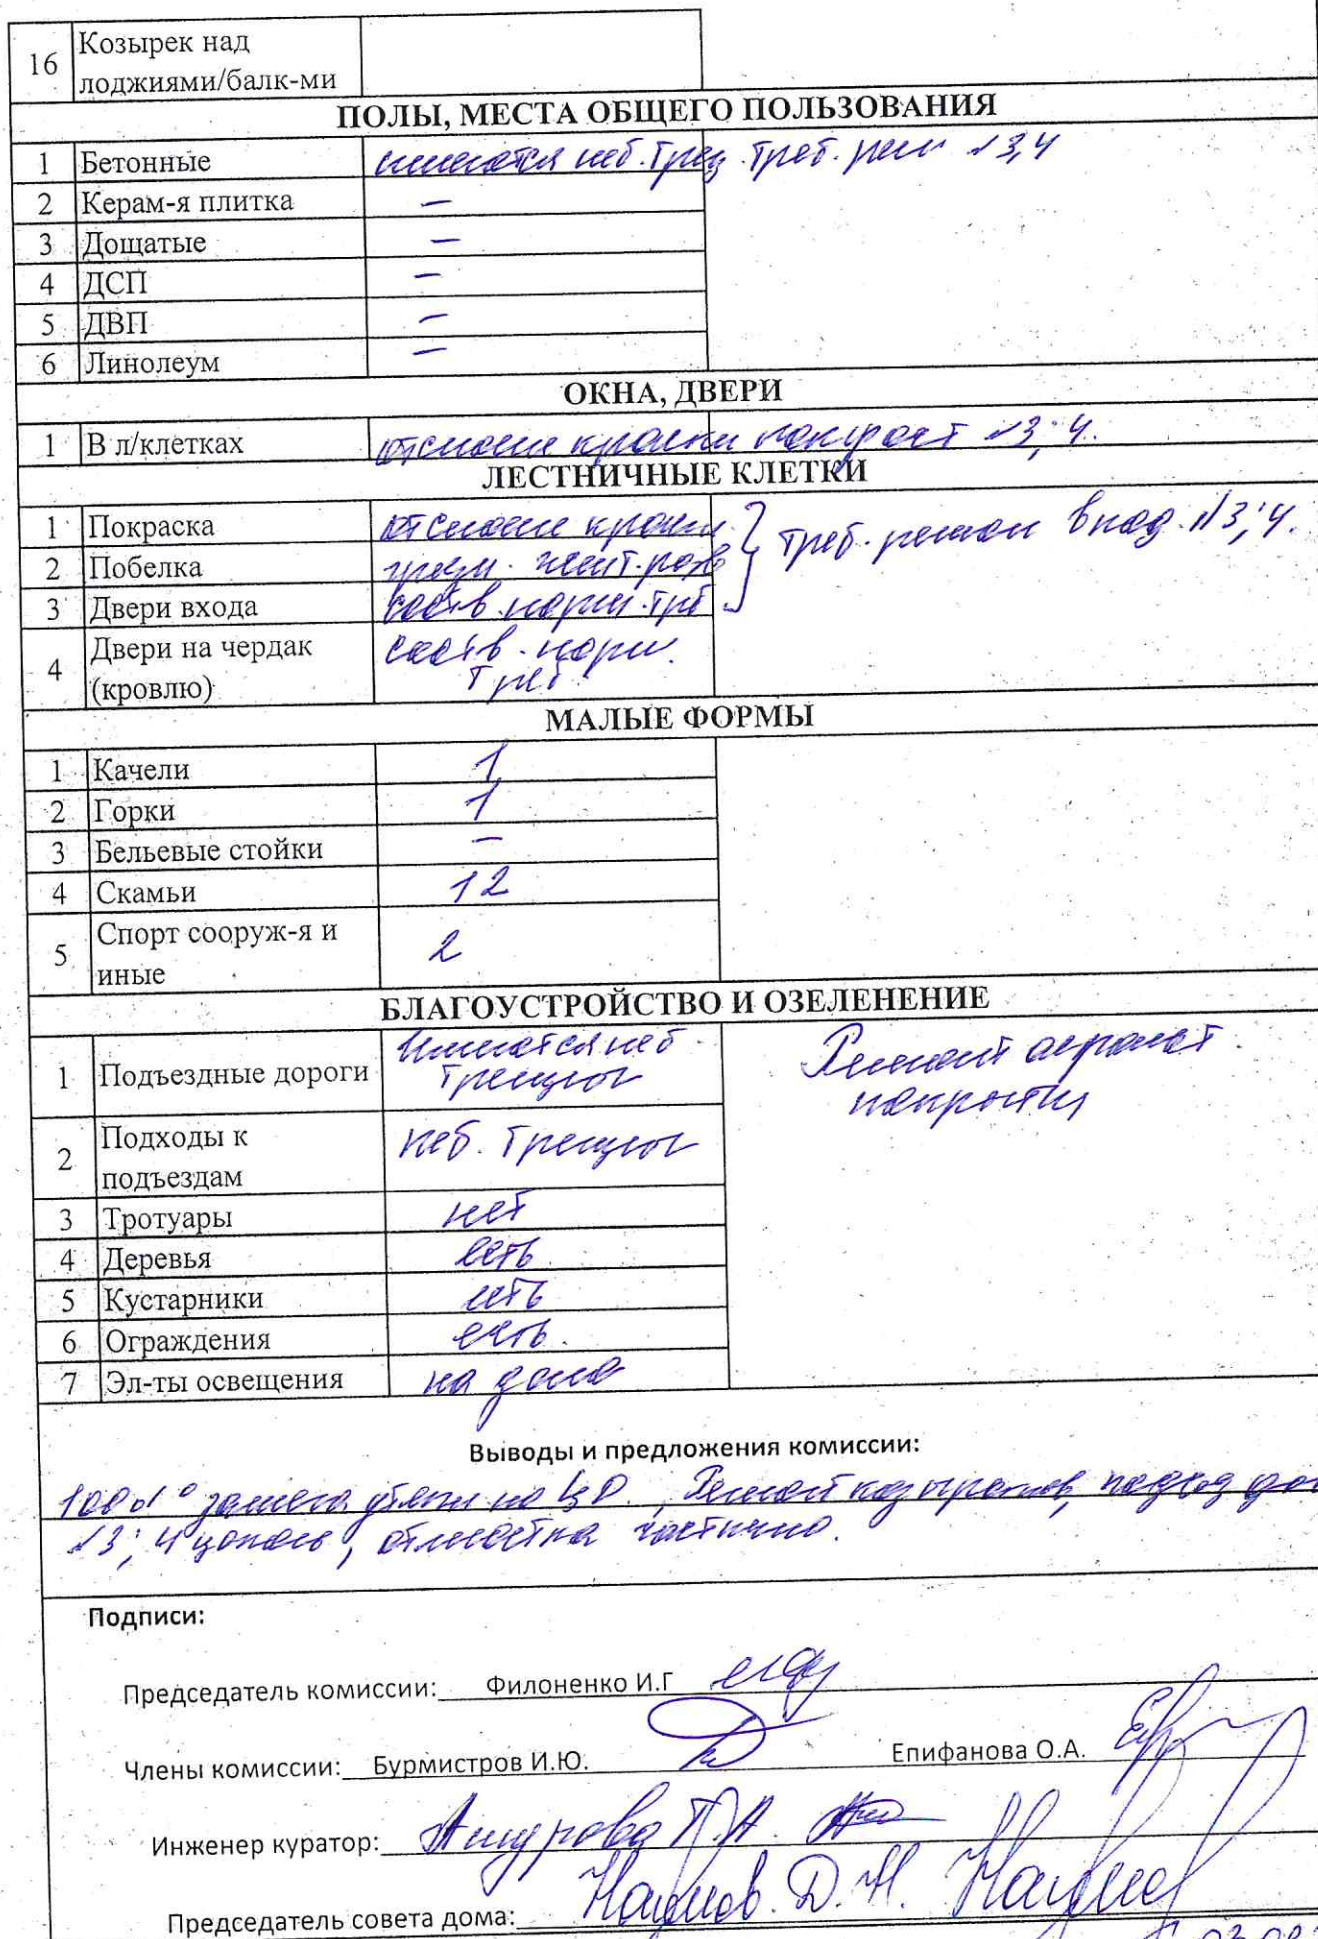 16 Козырек над
лоджиями/балк-ми
ПОЛЫ, МЕСТА ОБЩЕГО ПОЛЬЗОВАНИЯ
1 Бетонные имеются неб. трещ треб. рем №3,4
2 Керам-я плитка –
3 Дощатые –
4 ДСП –
5 ДВП –
6 Линолеум –
ОКНА, ДВЕРИ
1 В л/клетках отслоение краски №3; 4.
ЛЕСТНИЧНЫЕ КЛЕТКИ
1 Покраска отслоение краски
2 Побелка } треб. ремон в под. №3; 4.
3 Двери входа соотв. норм. трб
4 Двери на чердак соотв. норм.
(кровлю) треб.
МАЛЫЕ ФОРМЫ
1 Качели 1
2 Горки 1
3 Бельевые стойки –
4 Скамьи 12
5 Спорт сооруж-я и 2
иные
БЛАГОУСТРОЙСТВО И ОЗЕЛЕНЕНИЕ
1 Подъездные дороги Имеются неб. трещины Ремонт асфальт. покрытия
2 Подходы к неб. трещины
подъездам
3 Тротуары нет
4 Деревья есть
5 Кустарники есть
6 Ограждения есть.
7 Эл-ты освещения на доме
Выводы и предложения комиссии:
замена Ремонт козырьков, подход
№3; 4 цоколь, отмостка частично.
Подписи:
Председатель комиссии: Филоненко И.Г
Члены комиссии: Бурмистров И.Ю. Епифанова О.А.
Инженер куратор: Ашурова
Председатель совета дома: Наумов Д.Н.